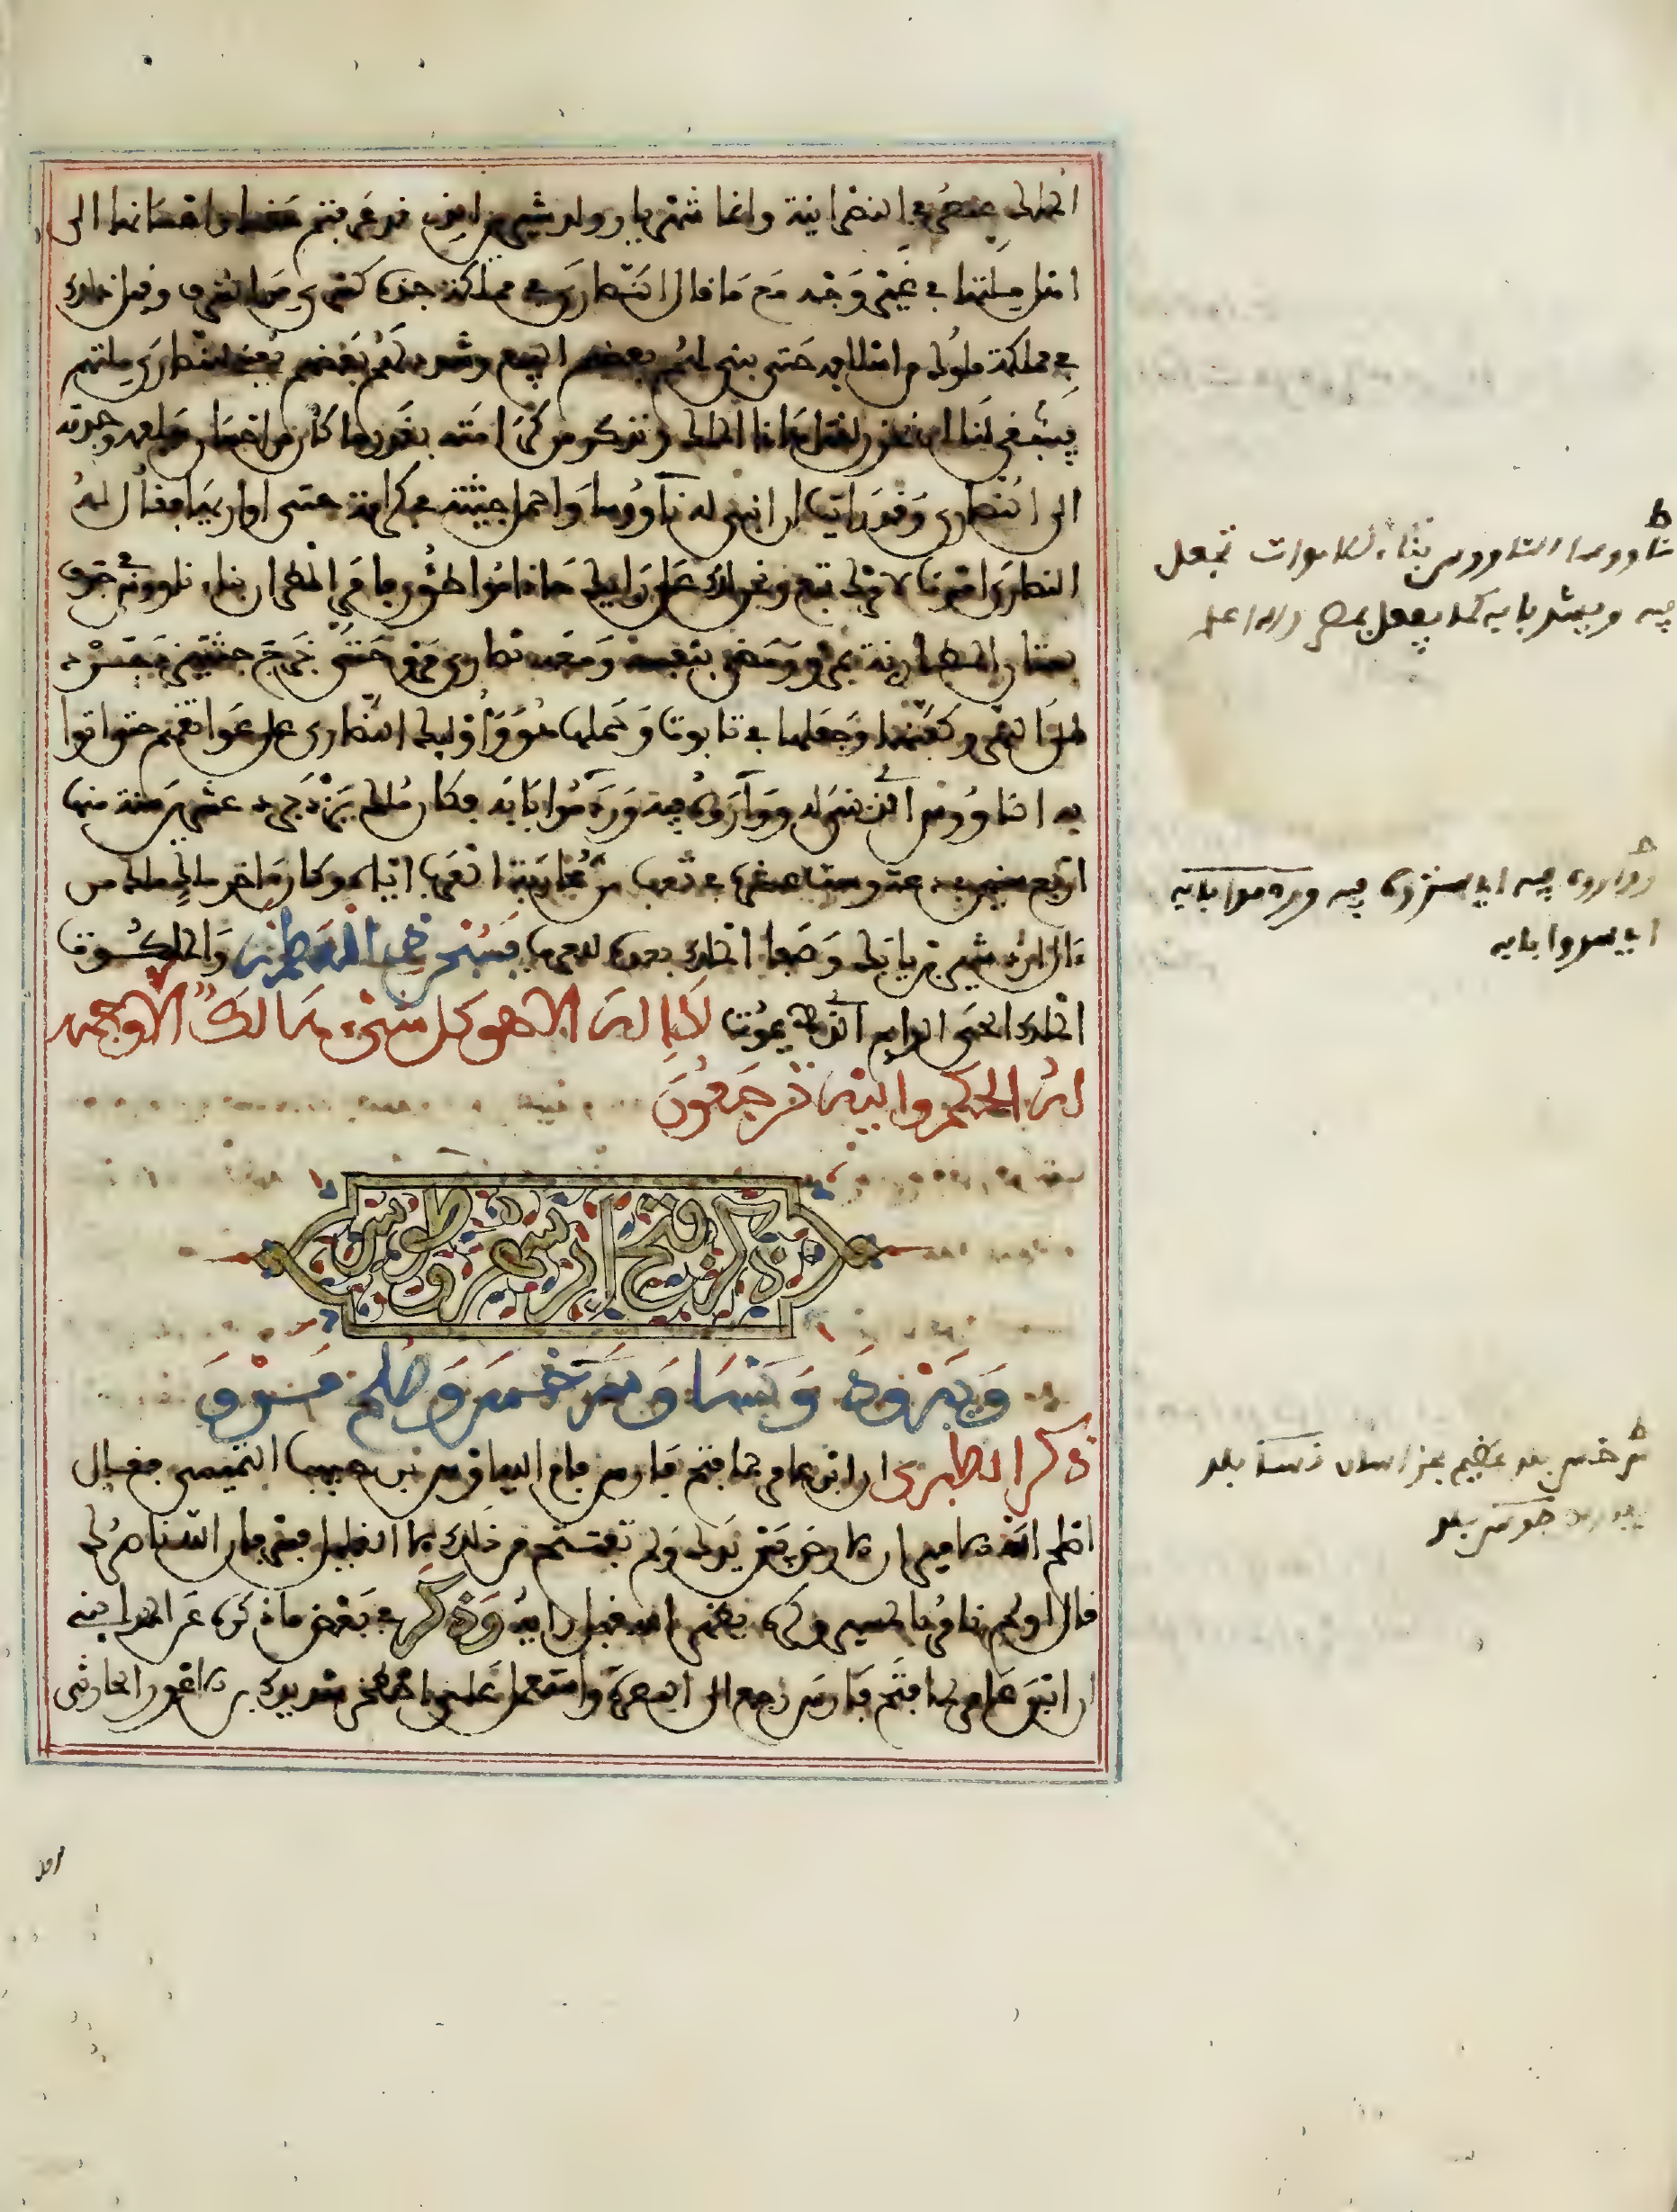 الملك عنصره في النصرانية وانما شهريار ولد شيرين التي قد عرفتم حقها واحسانها الى
اهل ملتها في غير وجه مع ما نال النصارى في مملكة جده كسرى من الشرف وقبل ذلك
في مملكة ملوك من اسلافه حتى بنى لهم بعضهم البيع وشدد لهم بعضهم بعض النصارى ملتهم
فينبغي لنا ان نحزن لقتل هذا الملك ونذكر من كرامته بقدر ما كان من احسان اسلافه وجدته
الى النصارى وقد رايت ان ابني له ناووسا واحمل جثته في كرامة حتى اواريها فقال له
النصارى امرنا لامرك تبع ونحن لك على رايك هذا فامر المطران ببناء ناووس في جوف
بستان المطارنة بمرو ومضى بنفسه ومعه نصارى مرو حتى استخرج جثته يزدجرد
من النهر وكفنها وجعلها في تابوت وحملها هو واوليك النصارى على عواتقهم حتى اتوا
به الناووس الذي بنى له وواروه فيه وردموا بابه فكان ملك يزدجرد عشرين سنة منها
اربع سنين في دعة وست عشرة في تعب من محاربة العرب اياه وكان اخر ملك ملك من
ءال اردشير بن بابك وصفا الملك بعده للعرب فسبحن ذي العظمة والملكوت
الملك الحي الدايم الذي لا يموت لا اله الا هو كل شيء هالك الا وجهه
له الحكم واليه ترجعون
ذكر فتح ابرشهر وطوس
وبيورد ونسا وسرخس وصلح مرو
ذكر الطبري ان ابن عامر لما فتح فارس قام اليه اوس بن حبيب التميمي فقال
اصلح الله الامير ان الارض بين يديك ولم تفتتح من ذلك الا القليل فسر فان الله ناصرك
قال اولم نامر بالمسير وكره ان يظهر انه قبل رايه وذكر في بعض ما ذكره عن المدايني
ان ابن عامر لما فتح فارس رجع الى البصرة واستعمل على اصطخر شريك بن الاعور الحارثي
ط
ناووسا الناووس بناء للاموات تجعل
فيه ويشد بابه كما يفعل بمصر والله اعلم
وواروه فيه اي ستروه فيه وردموا بابه
اي سدوا بابه
ط
سرخس بلد عظيم بخراسان نسا بلد